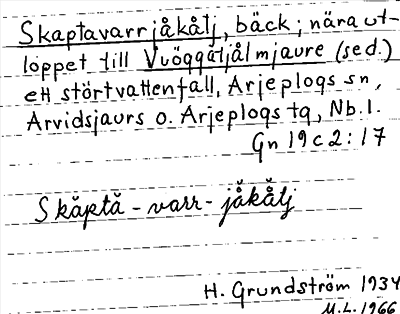 Skaptavarrjåkålj, bäck; nära ut-
loppet till Vuöggåtjålmjaure (se d.)
ett störtvattenfall, Arjeplogs sn,
Arvidsjaurs o. Arjeplogs tg, Nb. l.
Gn 19 c 2:17
Skăptă - varr - jåkålj
H. Grundström 1934
M.L. 1966